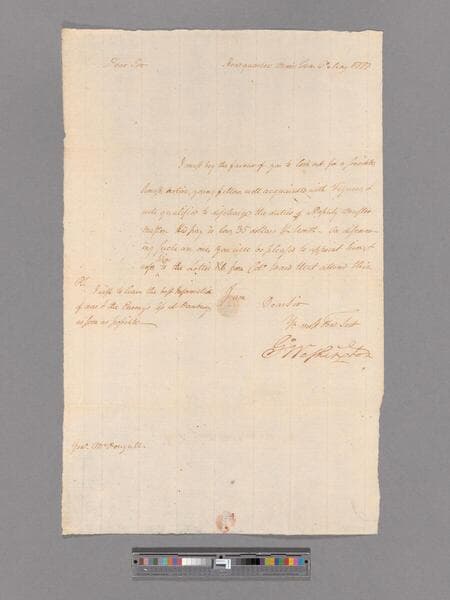 Dear Sir Head quarters Morris Town May 1777
I must beg the favour of you to look out for a sensible
honest active young fellow well acquainted with Figures &
well qualified to discharge the duties of Deputy Muster
Master his pay is 35 dollars Pr Month. On discover
ing such an one, you will be pleased to appoint him &
to the Letter from Colo Ward that attend this
I am
Dear Sir
Yr most Obed Sert
Go Washington
PS. I wish to learn the best
of what the Enemy did at Danbury
as soon as possible
Genl McDougall